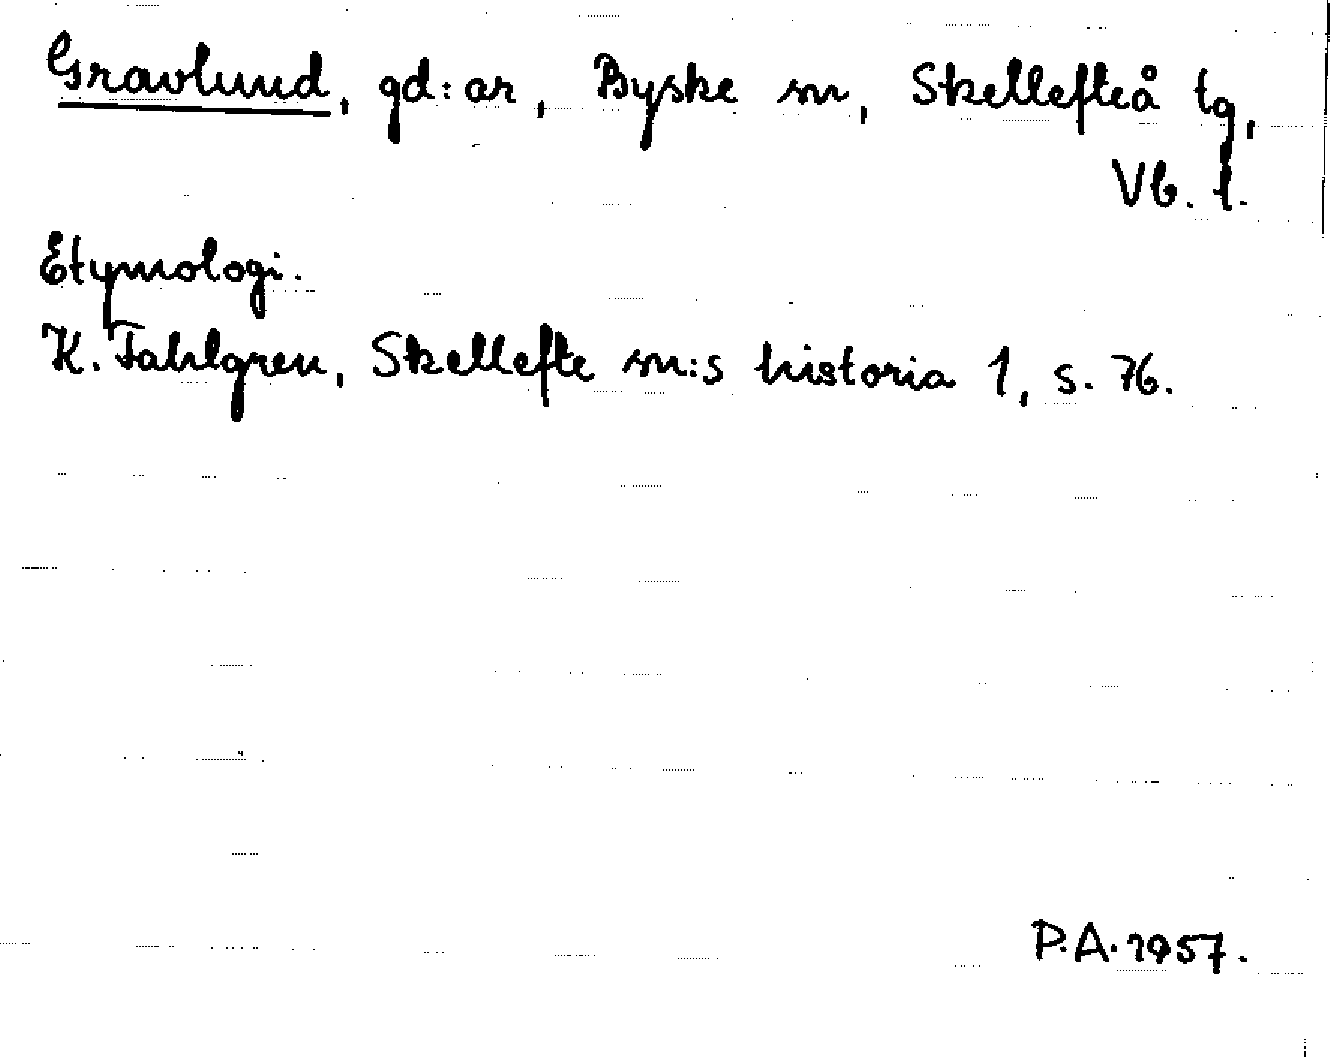 Gravlund, gd:ar, Byske sn, Skellefteå tg,
Vb. l.
Etymologi.
K. Fahlgren, Skellefte sn:s historia 1, s. 76.
P.A. 1957.